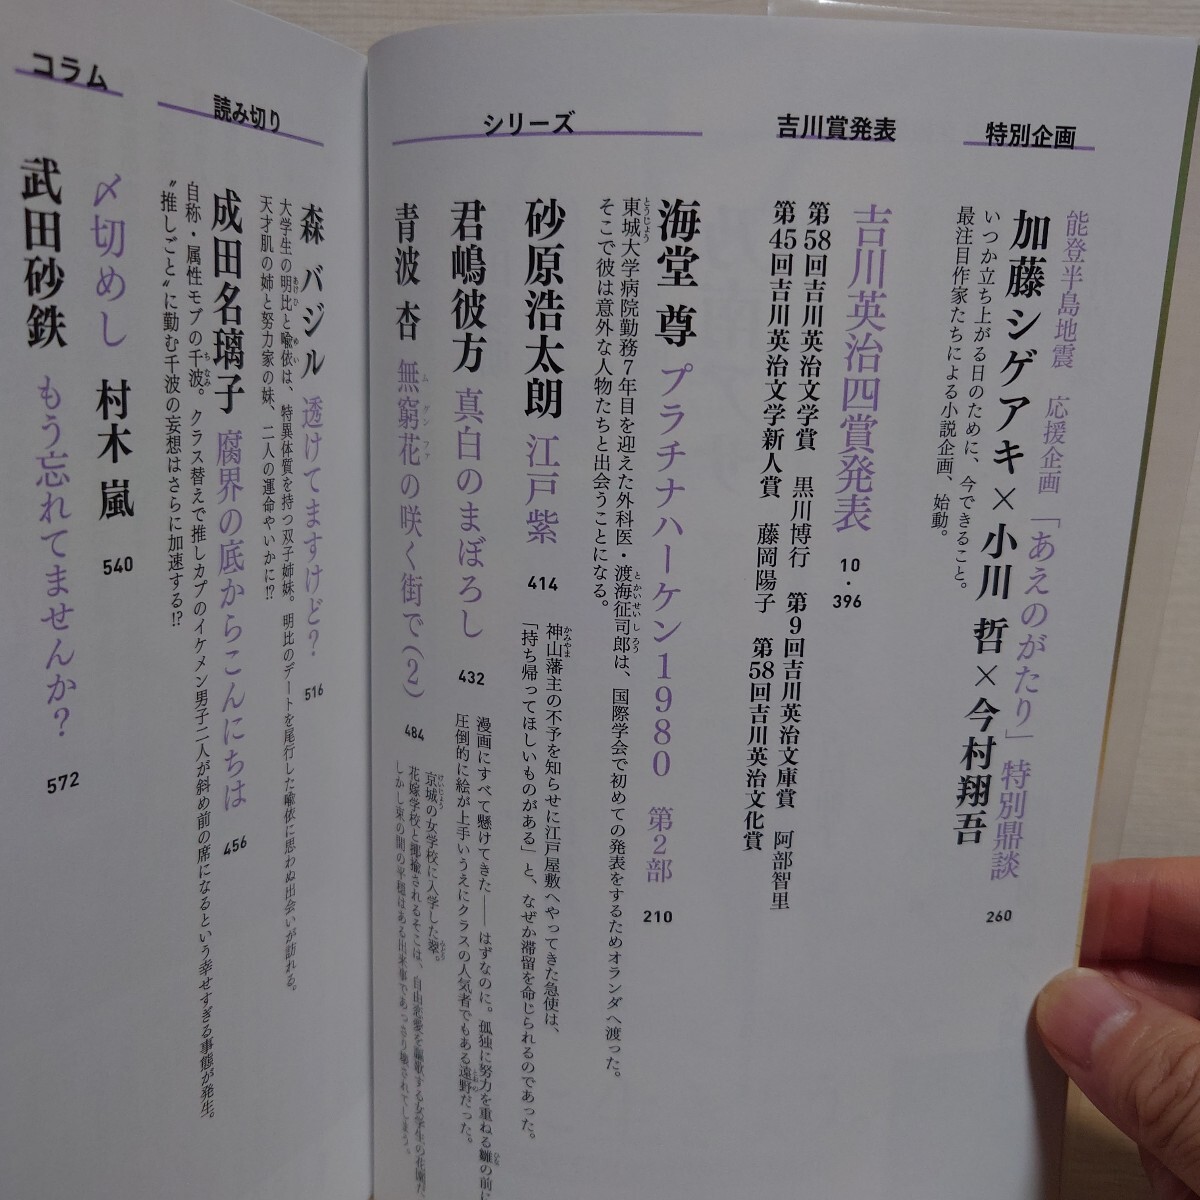 特別企画
能登半島地震 応援企画 「あえのがたり」 特別鼎談
加藤シゲアキ×小川 哲×今村翔吾
260
いつか立ち上がる日のために、今できること。
最注目作家たちによる小説企画、始動。
吉川賞発表
吉川英治四賞発表
10・396
第58回吉川英治文学賞 黒川博行 第9回吉川英治文庫賞 阿部智里
第45回吉川英治文学新人賞 藤岡陽子 第58回吉川英治文化賞
シリーズ
海堂 尊 プラチナハーケン1980 第2部
210
東城大学病院勤務7年目を迎えた外科医・渡海征司郎は、国際学会で初めての発表をするためオランダへ渡った。
そこで彼は意外な人物たちと出会うことになる。
砂原浩太朗 江戸紫
414
神山藩主の不予を知らせに江戸屋敷へやってきた急使は、
「持ち帰ってほしいものがある」と、なぜか滞留を命じられるのであった。
君嶋彼方 真白のまぼろし
432
漫画にすべて懸けてきた——はずなのに。孤独に努力を重ねる雛の前に
圧倒的に絵が上手いうえにクラスの人気者でもある遠野だった。
青波 杏 無窮花の咲く街で(2)
484
京城の女学校に入学した翠。
花嫁学校と揶揄されるそこは、自由恋愛を謳歌する女学生の花園だ
しかし束の間の平穏はある出来事であっさり壊されてしまう。
読み切り
森 バジル 透けてますけど?
516
大学生の明比と喩依は、特異体質を持つ双子姉妹。明比のデートを尾行した喩依に思わぬ出会いが訪れる。
天才肌の姉と努力家の妹、二人の運命やいかに!?
成田名璃子 腐界の底からこんにちは
456
自称・属性モブの千波。クラス替えで推しカプのイケメン男子二人が斜め前の席になるという幸せすぎる事態が発生。
〝推しごと〟に勤む千波の妄想はさらに加速する!?
コラム
〆切めし 村木 嵐
540
武田砂鉄 もう忘れてませんか?
572